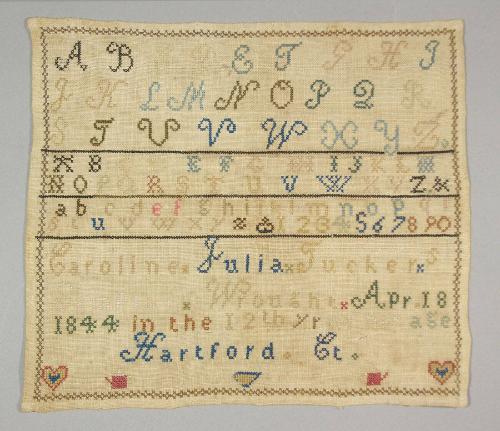 A B E T P H I
J K L M N O P Q R
S T U V W X Y Z.
A B E F I J K L M
N O P Q R S T U V W X Y Z &
a b c d e f g h i k l m n o p
u z & 1 2 3 4 5 6 7 8 9 0
Caroline Julia Tucker's
Wrought Apr. 18
1844 in the 12th yr age
Hartford. Ct.